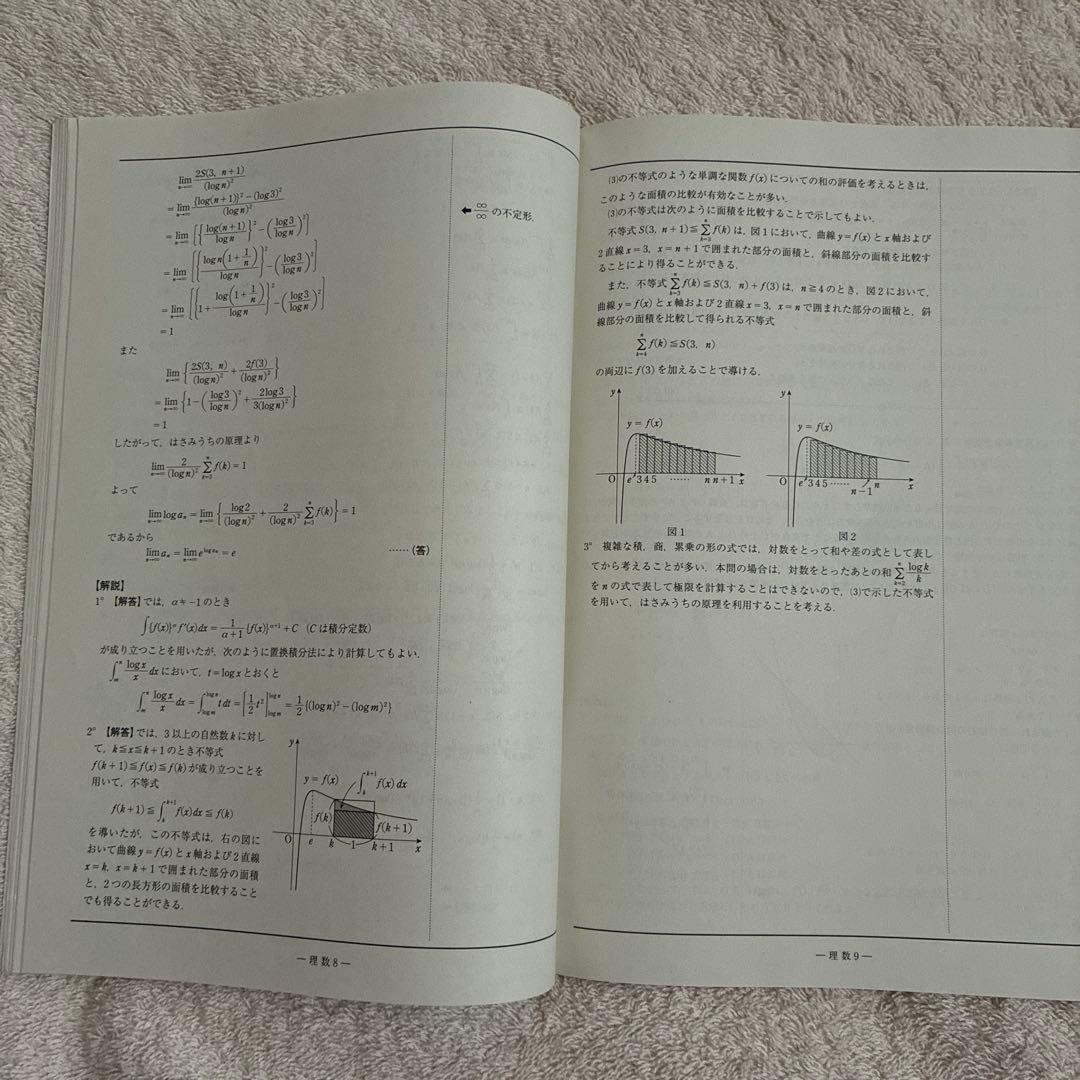 lim_{n→∞} 2S(3, n+1)/(log n)²
= lim_{n→∞} [{log(n+1)}² − (log3)²]/(log n)²
= lim_{n→∞} [{log(n+1)/log n}² − (log3/log n)²]
= lim_{n→∞} [{log n(1+1/n)/log n}² − (log3/log n)²]
= lim_{n→∞} [{1 + log(1+1/n)/log n}² − (log3/log n)²]
= 1
← ∞/∞ の不定形.
また
lim_{n→∞} {2S(3, n)/(log n)² + 2f(3)/(log n)²}
= lim_{n→∞} {1 − (log3/log n)² + 2log3/3(log n)²}
= 1
したがって, はさみうちの原理より
lim_{n→∞} 2/(log n)² Σ_{k=3}^{n} f(k) = 1
よって
lim_{n→∞} log aₙ = lim_{n→∞} {log2/(log n)² + 2/(log n)² Σ_{k=3}^{n} f(k)} = 1
であるから
lim_{n→∞} aₙ = lim_{n→∞} e^{log aₙ} = e ……(答)
【解説】
1° 【解答】では, α≠−1のとき
∫{f(x)}^α f′(x)dx = 1/(α+1) {f(x)}^{α+1} + C (Cは積分定数)
が成り立つことを用いたが, 次のように置換積分法により計算してもよい.
∫_m^n (log x/x) dx において, t=log x とおくと
∫_m^n (log x/x) dx = ∫_{log m}^{log n} t dt = [1/2 t²]_{log m}^{log n} = 1/2{(log n)² − (log m)²}
2° 【解答】では, 3以上の自然数kに対し
て, k≦x≦k+1のとき不等式
f(k+1)≦f(x)≦f(k)が成り立つことを
用いて, 不等式
f(k+1) ≦ ∫_k^{k+1} f(x)dx ≦ f(k)
を導いたが, この不等式は, 右の図に
おいて曲線y=f(x)とx軸および2直線
x=k, x=k+1で囲まれた部分の面積
と, 2つの長方形の面積を比較すること
でも得ることができる.
y
y=f(x)
∫_k^{k+1} f(x)dx
f(k)
f(k+1)
O e k 1 k+1 x
— 理数8 —
(3)の不等式のような単調な関数f(x)についての和の評価を考えるときは,
このような面積の比較が有効なことが多い.
(3)の不等式は次のように面積を比較することで示してもよい.
不等式 S(3, n+1)≦Σ_{k=3}^{n} f(k) は, 図1において, 曲線y=f(x)とx軸および
2直線x=3, x=n+1で囲まれた部分の面積と, 斜線部分の面積を比較す
ることにより得ることができる.
また, 不等式 Σ_{k=3}^{n} f(k)≦S(3, n)+f(3) は, n≧4のとき, 図2において,
曲線y=f(x)とx軸および2直線x=3, x=nで囲まれた部分の面積と, 斜
線部分の面積を比較して得られる不等式
Σ_{k=4}^{n} f(k) ≦ S(3, n)
の両辺にf(3)を加えることで導ける.
y
y=f(x)
O e 3 4 5 …… n n+1 x
図1
y
y=f(x)
O e 3 4 5 …… n−1 n x
図2
3° 複雑な積, 商, 累乗の形の式では, 対数をとって和や差の式として表し
てから考えることが多い. 本問の場合は, 対数をとったあとの和 Σ_{k=2}^{n} log k/k
をnの式で表して極限を計算することはできないので, (3)で示した不等式
を用いて, はさみうちの原理を利用することを考える.
— 理数9 —